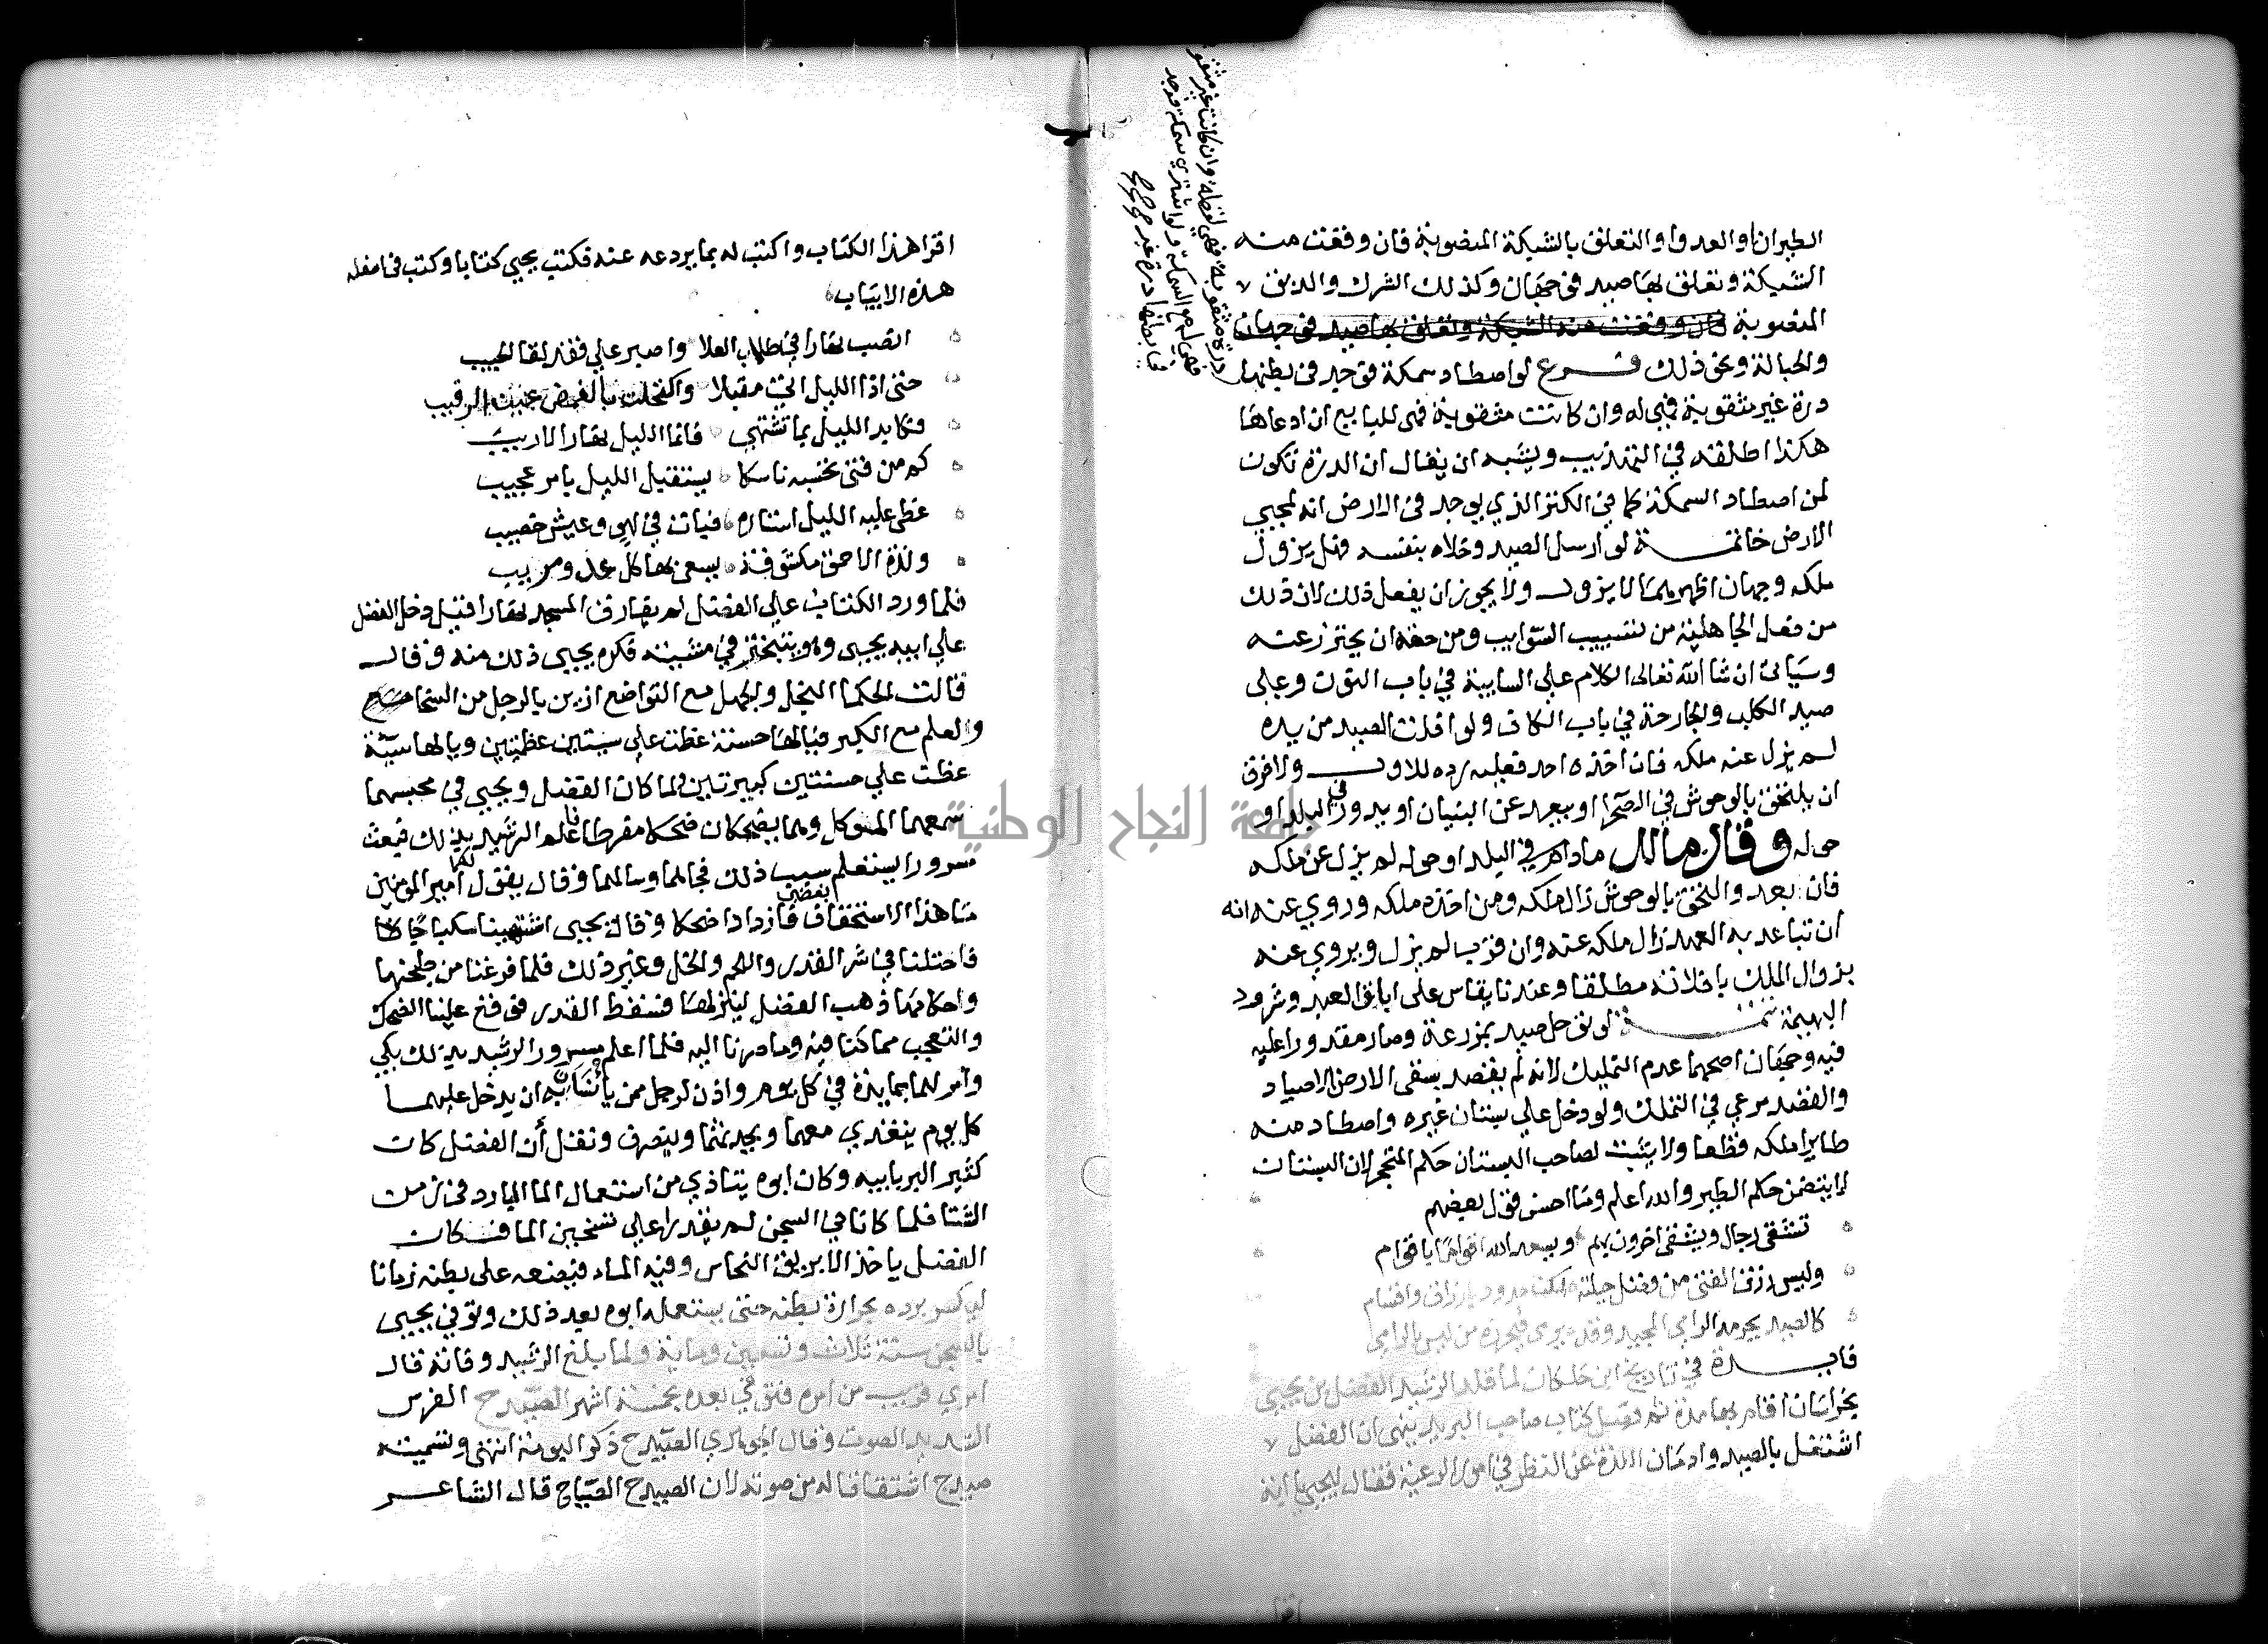 الطيران او العدو او التعلق بالشبكة المنصوبة فان وقعت منه
الشبكة وتعلق بها صيد فوجهان وكذلك الشرك والدبق
المنصوبة فان وقعت منه الشبكة وتعلق بها صيد فوجهان
والحبالة ونحو ذلك فرع لو اصطاد سمكة فوجد في بطنها
درة غير مثقوبة فهي له وان كانت مثقوبة فهي للبايع ان ادعاها
هكذا اطلقه في التهذيب ويشبه ان يقال ان الدرة تكون
لمن اصطاد السمكة كما في الكنز الذي يوجد في الارض انه لمحيي
الارض خاتمة لو ارسل الصيد وخلاه بنفسه فهل يزول
ملكه وجهان اظهرهما لا يزول ولا يجوز ان يفعل ذلك لان ذلك
من فعل الجاهلية من تسييب السوايب ومن حقه ان يحترز عنه
وسياتي ان شا الله تعالى الكلام على السايبة في باب النون وعلى
صيد الكلب والجارحة في باب الكاف ولو افلت الصيد من يده
لم يزل عنه ملكه فان اخذه احد فعليه رده للاول ولا فرق
ان يلتحق بالوحوش في الصحرا او يبعد عن البنيان او يدور في البلد او
حوله وقال مالك مادام في البلد او حوله لم يزل عن ملكه
فان بعد والتحق بالوحوش زال ملكه ومن اخذه ملكه وروي عنه انه
ان تباعد به العهد زال ملكه عنه وان قرب لم يزل ويروي عنه
بزوال الملك بافلاته مطلقا وعندنا يقاس على اباق العبد وشرود
البهيمة تتمة لو توحل صيد بمزرعة وصار مقدورا عليه
فيه وجهان اصحهما عدم التمليك لانه لم يقصد بسقي الارض الاصياد
والقصد مرعي في التملك ولو دخل على بستان غيره واصطاد منه
طايرا ملكه قطعا ولا يثبت لصاحب البستان حكم المتحجر لان البستان
لا يتضمن حكم الطير والله اعلم وما احسن قول بعضهم
تشقى رجال ويشقى اخرون بهم ويسعد الله اقواما باقوام
وليس رزق الفتى من فضل حيلته لكن حدود بارزاق واقسام
كالصيد يحرمه الرامي المجيد وقد يرمى فيحرزه من ليس بالرامي
فايدة في تاريخ ابن خلكان لما قلد الرشيد الفضل بن يحيى
بخراسان اقام بها مدة ثم وصل كتاب صاحب البريد ينهى ان الفضل
اشتغل بالصيد وادمان اللذة عن النظر في امور الرعية فقال ليحيى يا ابة
درة مثقوبة فهي لقطة وان كانت غير مثقو
فهي له مع السمكة ولو اشترى سمكة فوجد
في بطنها درة غير
اقرا هذا الكتاب واكتب له بما يردعه عنه فكتب يحيى كتابا وكتب في اسفله
هذه الابيات
انصب نهارا في طلاب العلا واصبر على فقد لقا الحبيب
حتى اذا الليل اتى مقبلا واكتحلت بالغمض عين الرقيب
فكابد الليل بما تشتهي فانما الليل نهار الاريب
كم من فتى تحسبه ناسكا يستقبل الليل بامر عجيب
غطى عليه الليل استاره فبات في لهو وعيش خصيب
ولذة الاحمق مكشوفة يسعى بها كل عدو مريب
فلما ورد الكتاب على الفضل لم يفارق المسجد نهارا فقيل دخل الفضل
على ابيه يحيى وهو يتبختر في مشيته فكره يحيى ذلك منه وقال
قالت الحكما البخل والجهل مع التواضع ازين بالرجل من السخا
والعلم مع الكبر فيالها حسنة غطت على سيئتين عظيمتين ويالها سيئة
غطت على حسنتين كبيرتين ولما كان الفضل ويحيى في محبسهما
سمعهما المتوكل وهما يضحكان ضحكا مفرطا فاعلم الرشيد بذلك فبعث
مسرورا يستعلم سبب ذلك فجاهما وسالهما وقال يقول لكما امير المومنين
ما هذا الاستخفاف بغضبي فازدادا ضحكا وقال يحيى اشتهينا سكباجا
فاحتلنا في شرا القدر واللحم والخل وغير ذلك فلما فرغنا من طبخها
واحكامها ذهب الفضل لينزلها فسقط القدر فوقع علينا الضحك
والتعجب مما كنا فيه وما صرنا اليه فلما اعلم مسرور الرشيد بذلك بكى
وامر لهما بمايدة في كل يوم واذن لرجل ممن يانسان به ان يدخل عليهما
كل يوم يتغدي معهما ويحدثهما وينصرف ونقل أن الفضل كان
كثير البر بابيه وكان ابوه يتاذي من استعمال الما البارد في زمن
الشتا فلما كانا في السجن لم يقدرا على تسخين الما فكان
الفضل ياخذ الابريق النحاس وفيه الماء فيضعه على بطنه زمانا
لينكسر برده بحرارة بطنه حتى يستعمله ابوه بعد ذلك وتوفي يحيى
بالسجن سنة ثلاث وتسعين وماية ولما بلغ الرشيد وفاته قال
امري قريب من امره فتوفي بعده بخمسة اشهر الصيدح الفرس
الشديد الصوت وقال الجوهري الصيدح ذكر البومة انتهى وتسميته
صيدح اشتقاقا له من صوته لان الصيدح الصياح قال الشاعر
جامعة النجاح الوطنية